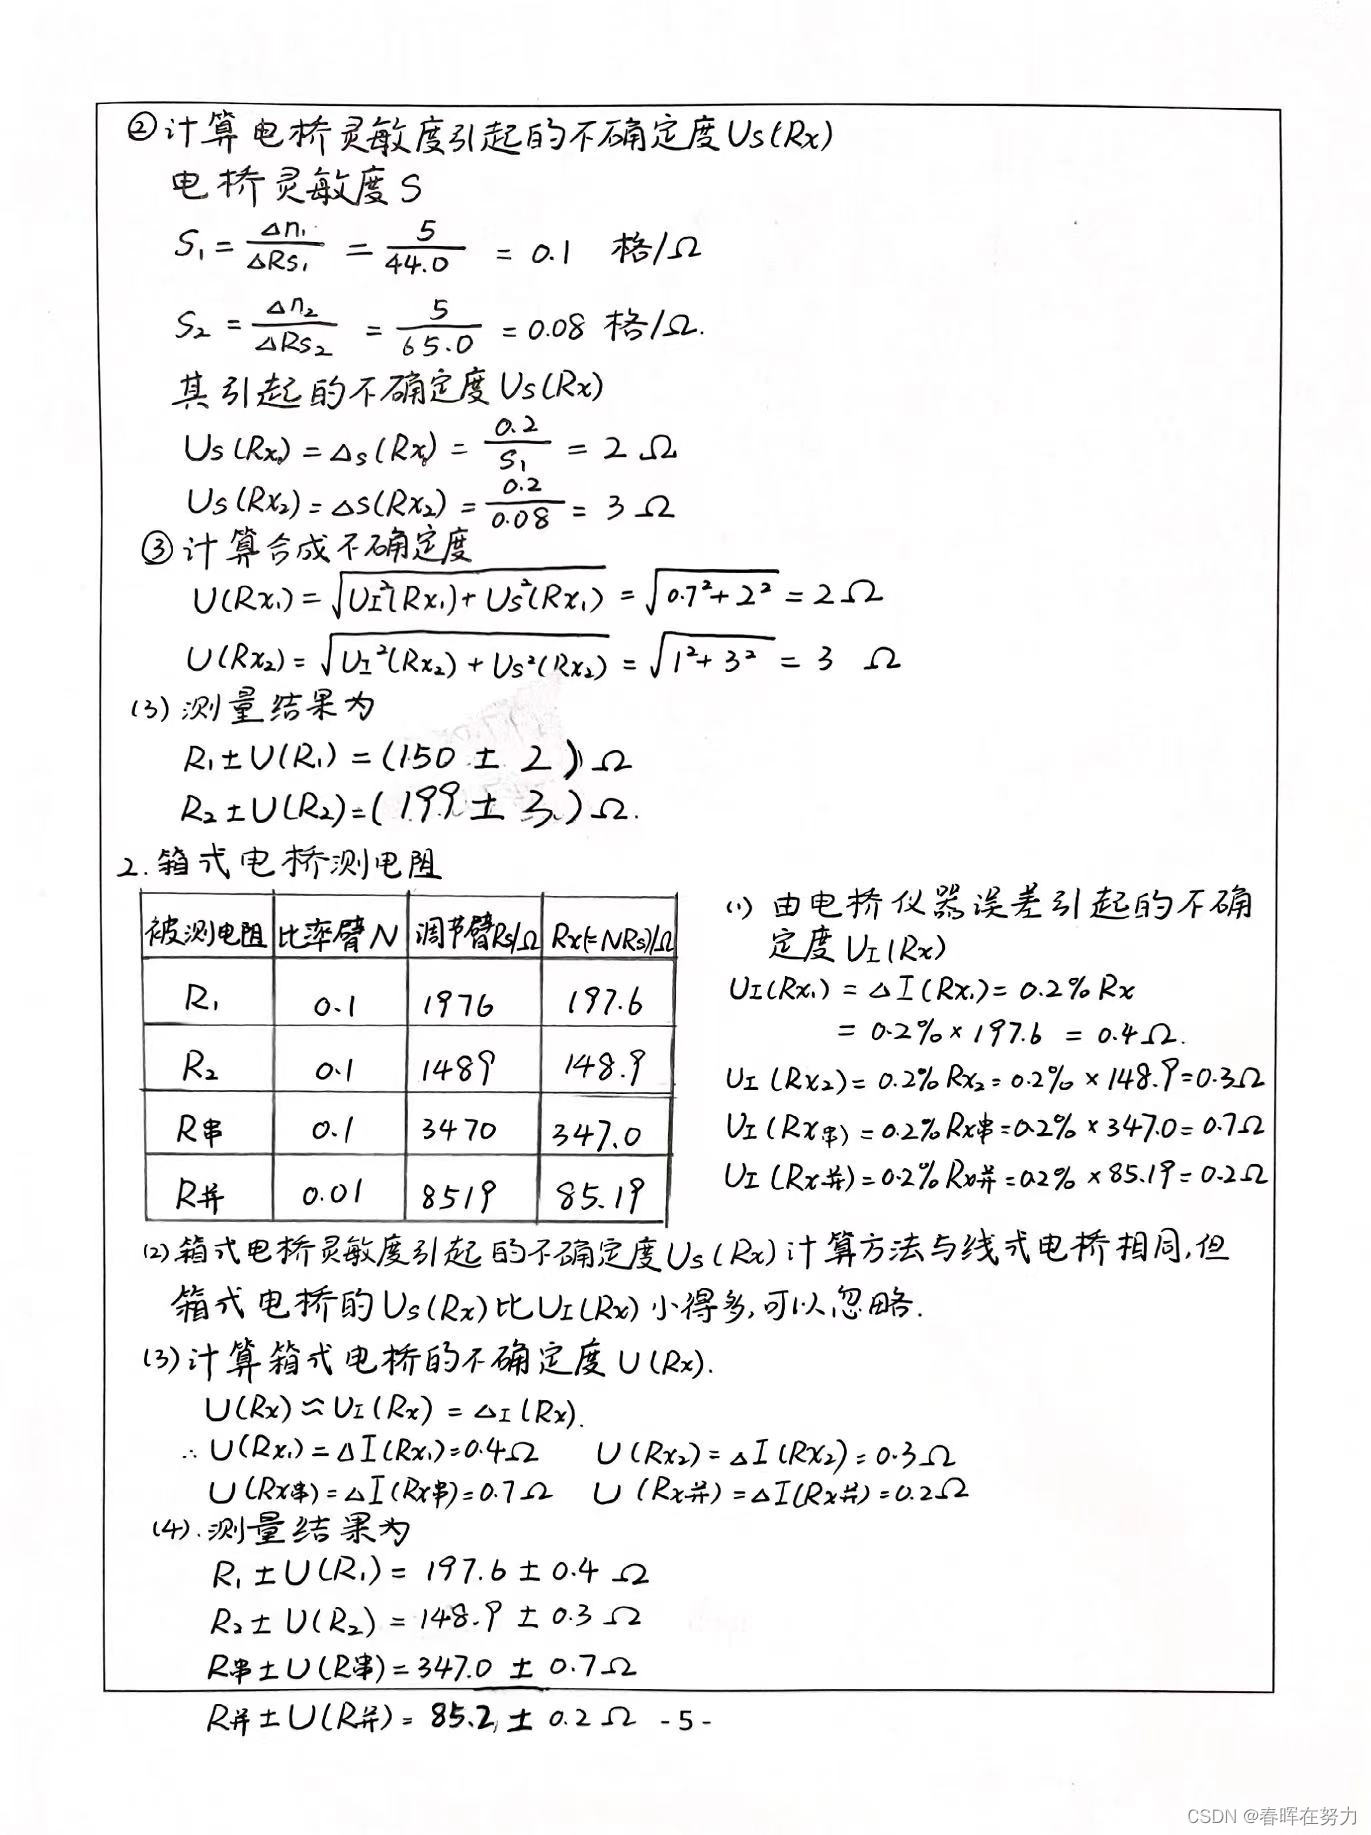 ②计算电桥灵敏度引起的不确定度Us(Rx)
电桥灵敏度S
S₁ = Δn₁/ΔRs₁ = 5/44.0 = 0.1 格/Ω
S₂ = Δn₂/ΔRs₂ = 5/65.0 = 0.08 格/Ω.
其引起的不确定度Us(Rx)
Us(Rx₁) = Δs(Rx₁) = 0.2/S₁ = 2 Ω
Us(Rx₂) = Δs(Rx₂) = 0.2/0.08 = 3 Ω
③计算合成不确定度
U(Rx₁) = √(U_I²(Rx₁) + Us²(Rx₁)) = √(0.7²+2²) = 2Ω
U(Rx₂) = √(U_I²(Rx₂) + Us²(Rx₂)) = √(1²+3²) = 3 Ω
(3) 测量结果为
R₁±U(R₁) = (150 ± 2)Ω
R₂±U(R₂) = (199 ± 3)Ω.
2.箱式电桥测电阻
被测电阻 比率臂N 调节臂Rs/Ω Rx(=NRs)/Ω
R₁ 0.1 1976 197.6
R₂ 0.1 1489 148.9
R串 0.1 3470 347.0
R并 0.01 8519 85.19
(1) 由电桥仪器误差引起的不确
定度U_I(Rx)
U_I(Rx₁) = ΔI(Rx₁) = 0.2% Rx
= 0.2% × 197.6 = 0.4Ω.
U_I(Rx₂) = 0.2% Rx₂ = 0.2% × 148.9 = 0.3Ω
U_I(Rx串) = 0.2% Rx串 = 0.2% × 347.0 = 0.7Ω
U_I(Rx并) = 0.2% Rx并 = 0.2% × 85.19 = 0.2Ω
(2) 箱式电桥灵敏度引起的不确定度Us(Rx)计算方法与线式电桥相同,但
箱式电桥的Us(Rx)比U_I(Rx)小得多,可以忽略.
(3) 计算箱式电桥的不确定度U(Rx).
U(Rx) ≈ U_I(Rx) = Δ_I(Rx).
∴ U(Rx₁) = ΔI(Rx₁) = 0.4Ω U(Rx₂) = ΔI(Rx₂) = 0.3Ω
U(Rx串) = ΔI(Rx串) = 0.7Ω U(Rx并) = ΔI(Rx并) = 0.2Ω
(4).测量结果为
R₁±U(R₁) = 197.6 ± 0.4 Ω
R₂±U(R₂) = 148.9 ± 0.3 Ω
R串±U(R串) = 347.0 ± 0.7Ω
R并±U(R并) = 85.2 ± 0.2 Ω
-5-
CSDN @春晖在努力